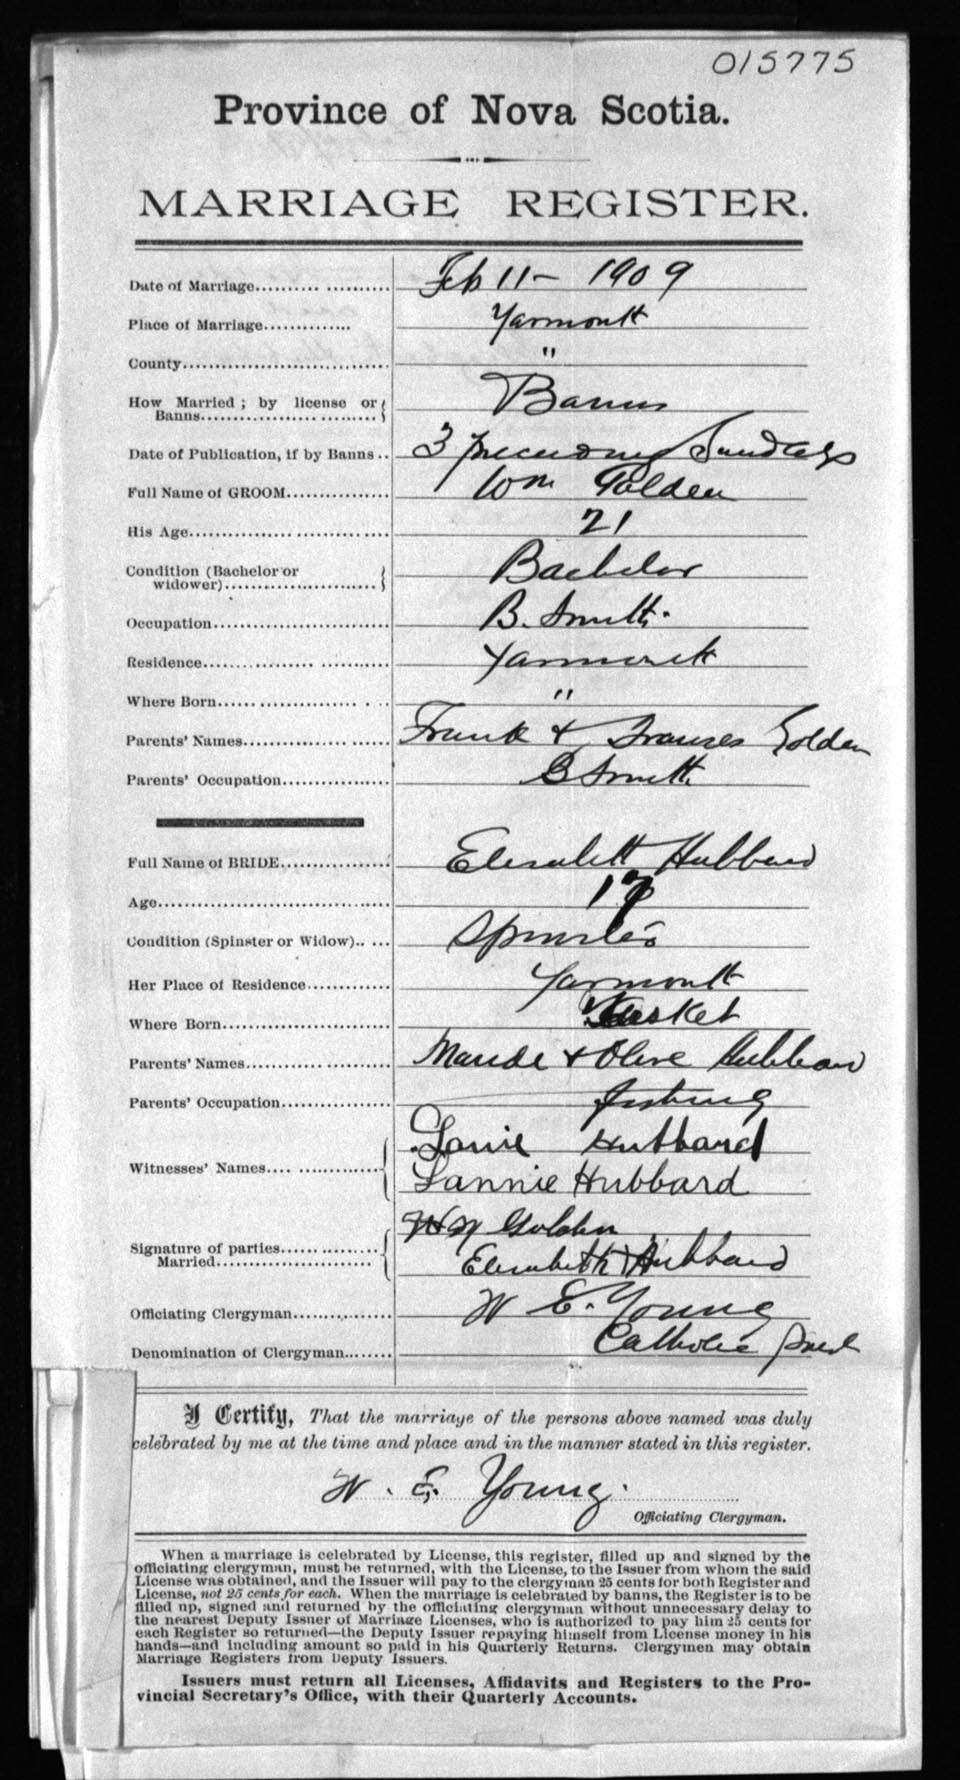 015775
Province of Nova Scotia.
MARRIAGE REGISTER.
Date of Marriage.......... Feb 11 - 1909
Place of Marriage.............. Yarmouth
County.................................. "
How Married ; by license or Banns........................ Banns
Date of Publication, if by Banns .. 3 preceding Sundays
Full Name of GROOM................. Wm Golden
His Age.................................. 21
Condition (Bachelor or widower)........................ Bachelor
Occupation............................. B. Smith.
Residence............................... Yarmouth
Where Born............................ "
Parents' Names....................... Frank & Frances Golden
Parents' Occupation................ B Smith
Full Name of BRIDE................. Elizabeth Hubbard
Age....................................... 17
Condition (Spinster or Widow)..... Spinster
Her Place of Residence............. Yarmouth
Where Born............................ Tusket
Parents' Names....................... Maude & Olive Hubbard
Parents' Occupation................ fishing
Witnesses' Names.................... Louie Hubbard
Lannie Hubbard
Signature of parties Married........................ Wm Golden
Elizabeth Hubbard
Officiating Clergyman............... W E. Young
Denomination of Clergyman........ Catholic priest
I Certify, That the marriage of the persons above named was duly
celebrated by me at the time and place and in the manner stated in this register.
W. E. Young.
Officiating Clergyman.
When a marriage is celebrated by License, this register, filled up and signed by the
officiating clergyman, must be returned, with the License, to the Issuer from whom the said
License was obtained, and the Issuer will pay to the clergyman 25 cents for both Register and
License, not 25 cents for each. When the marriage is celebrated by banns, the Register is to be
filled up, signed and returned by the officiating clergyman without unnecessary delay to
the nearest Deputy Issuer of Marriage Licenses, who is authorized to pay him 25 cents for
each Register so returned—the Deputy Issuer repaying himself from License money in his
hands—and including amount so paid in his Quarterly Returns. Clergymen may obtain
Marriage Registers from Deputy Issuers.
Issuers must return all Licenses, Affidavits and Registers to the Pro-
vincial Secretary's Office, with their Quarterly Accounts.